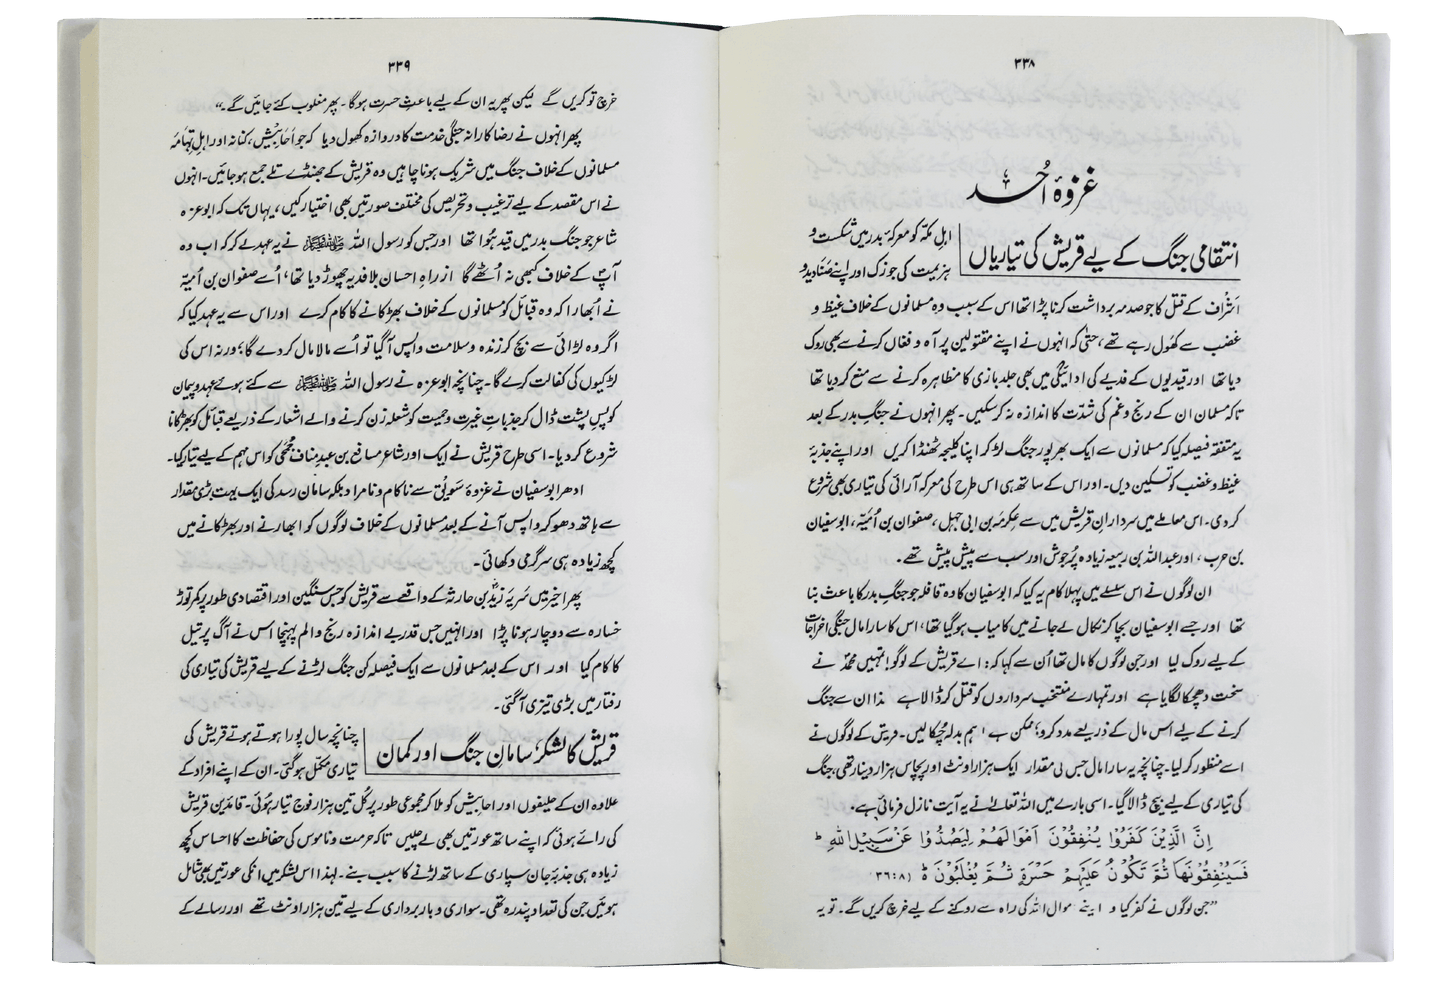 ۳۳۸
غزوۂ اُحد
انتقامی جنگ کے لیے قریش کی تیاریاں
اہلِ مکہ کو معرکۂ بدر میں شکست و
ہزیمت کی جو زک اور اپنے صَنَادید و
اَشراف کے قتل کا جو صدمہ برداشت کرنا پڑا تھا اس کے سبب وہ مسلمانوں کے خلاف غیظ و
غضب سے کھول رہے تھے، حتیٰ کہ انہوں نے اپنے مقتولین پر آہ و فغاں کرنے سے بھی روک
دیا تھا اور قیدیوں کے فدیے کی ادائیگی میں بھی جلد بازی کا مظاہرہ کرنے سے منع کردیا تھا
تاکہ مسلمان ان کے رنج و غم کی شدّت کا اندازہ نہ کرسکیں۔ پھر انہوں نے جنگِ بدر کے بعد
یہ متفقہ فیصلہ کیا کہ مسلمانوں سے ایک بھرپور جنگ لڑ کر اپنا کلیجہ ٹھنڈا کریں اور اپنے جذبۂ
غیظ و غضب کو تسکین دیں۔ اور اس کے ساتھ ہی اس طرح کی معرکہ آرائی کی تیاری بھی شروع
کردی۔ اس معاملے میں سردارانِ قریش میں سے عِکرِمَہ بن ابی جہل، صفوان بن اُمَیَّہ، ابوسفیان
بن حرب، اور عبداللہ بن ربیعہ زیادہ پُرجوش اور سب سے پیش پیش تھے۔
ان لوگوں نے اس سلسلے میں پہلا کام یہ کیا کہ ابوسفیان کا وہ قافلہ جو جنگِ بدر کا باعث بنا
تھا اور جسے ابوسفیان بچا کر نکال لے جانے میں کامیاب ہوگیا تھا، اس کا سارا مال جنگی اخراجات
کے لیے روک لیا اور جن لوگوں کا مال تھا اُن سے کہا کہ: اے قریش کے لوگو! تمہیں محمدؐ نے
سخت دھچکا لگایا ہے اور تمہارے منتخب سرداروں کو قتل کر ڈالا ہے ہذا ان سے جنگ
کرنے کے لیے اس مال کے ذریعے مدد کرو؛ ممکن ہے ہم بدلہ چُکا لیں۔ قریش کے لوگوں نے
اسے منظور کرلیا۔ چنانچہ یہ سارا مال جس کی مقدار ایک ہزار اونٹ اور پچاس ہزار دینار تھی، جنگ
کی تیاری کے لیے بیچ ڈالا گیا۔ اسی بارے میں اللہ تعالےٰ نے یہ آیت نازل فرمائی ہے۔
اِنَّ الَّذِیْنَ كَفَرُوْا یُنْفِقُوْنَ اَمْوَالَهُمْ لِیَصُدُّوْا عَنْ سَبِیْلِ اللّٰهِ ؕ
فَسَیُنْفِقُوْنَهَا ثُمَّ تَكُوْنُ عَلَیْهِمْ حَسْرَةً ثُمَّ یُغْلَبُوْنَ ؕ (۳۶:۸)
”جن لوگوں نے کفر کیا وہ اپنے اموال اللہ کی راہ سے روکنے کے لیے خرچ کریں گے۔ تو یہ
۳۳۹
خرچ تو کریں گے لیکن پھر یہ ان کے لیے باعثِ حسرت ہوگا۔ پھر مغلوب کئے جائیں گے۔“
پھر انہوں نے رضاکارانہ جنگی خدمت کا دروازہ کھول دیا کہ جو اَحَابِیْش، کنانہ اور اہلِ تِہامَہ
مسلمانوں کے خلاف جنگ میں شریک ہونا چاہیں وہ قریش کے جھنڈے تلے جمع ہو جائیں۔ انہوں
نے اس مقصد کے لیے ترغیب و تحریص کی مختلف صورتیں بھی اختیار کیں، یہاں تک کہ ابوعزہ
شاعر جو جنگ بدر میں قید ہوا تھا اور جس کو رسول اللہ ﷺ نے یہ عہد لے کر کہ اب وہ
آپؐ کے خلاف کبھی نہ اُٹھے گا ازراہِ احسان بلا فدیہ چھوڑ دیا تھا، اُسے صفوان بن اُمیّہ
نے اُبھارا کہ وہ قبائل کو مسلمانوں کے خلاف بھڑکانے کا کام کرے اور اس سے یہ عہد کیا کہ
اگر وہ لڑائی سے بچ کر زندہ و سلامت واپس آگیا تو اُسے مالا مال کردے گا؛ ورنہ اس کی
لڑکیوں کی کفالت کرے گا۔ چنانچہ ابوعزہ نے رسول اللہ ﷺ سے کئے ہوئے عہد و پیمان
کو پسِ پشت ڈال کر جذباتِ غیرت و حمیت کو شعلہ زن کرنے والے اشعار کے ذریعے قبائل کو بھڑکانا
شروع کردیا۔ اسی طرح قریش نے ایک اور شاعر مسافع بن عبدِ مناف جُمَحی کو اس مہم کے لیے تیار کیا۔
ادھر ابوسفیان نے غزوۂ سَویق سے ناکام و نامراد بلکہ سامانِ رسد کی ایک بہت بڑی مقدار
سے ہاتھ دھو کر واپس آنے کے بعد مسلمانوں کے خلاف لوگوں کو ابھارنے اور بھڑکانے میں
کچھ زیادہ ہی سرگرمی دکھائی۔
پھر اخیر میں سَرِیّہ زیدؓ بن حارثہ کے واقعے سے قریش کو جس سنگین اور اقتصادی طور پر کمر توڑ
خسارہ سے دوچار ہونا پڑا اور انہیں جس قدر بے اندازہ رنج و الم پہنچا اس نے آگ پر تیل
کا کام کیا اور اس کے بعد مسلمانوں سے ایک فیصلہ کن جنگ لڑنے کے لیے قریش کی تیاری کی
رفتار میں بڑی تیزی آگئی۔
قریش کا لشکر، سامانِ جنگ اور کمان
چنانچہ سال پورا ہوتے ہوتے قریش کی
تیاری مکمّل ہوگئی۔ ان کے اپنے افراد کے
علاوہ ان کے حلیفوں اور احابیش کو ملا کر مجموعی طور پر کُل تین ہزار فوج تیار ہوئی۔ قائدینِ قریش
کی رائے ہوئی کہ اپنے ساتھ عورتیں بھی لے چلیں تاکہ حرمت و ناموس کی حفاظت کا احساس کچھ
زیادہ ہی جذبۂ جان سپاری کے ساتھ لڑنے کا سبب بنے۔ لہٰذا اس لشکر میں انکی عورتیں بھی شامل
ہوئیں جن کی تعداد پندرہ تھی۔ سواری و بار برداری کے لیے تین ہزار اونٹ تھے اور رسالے کے